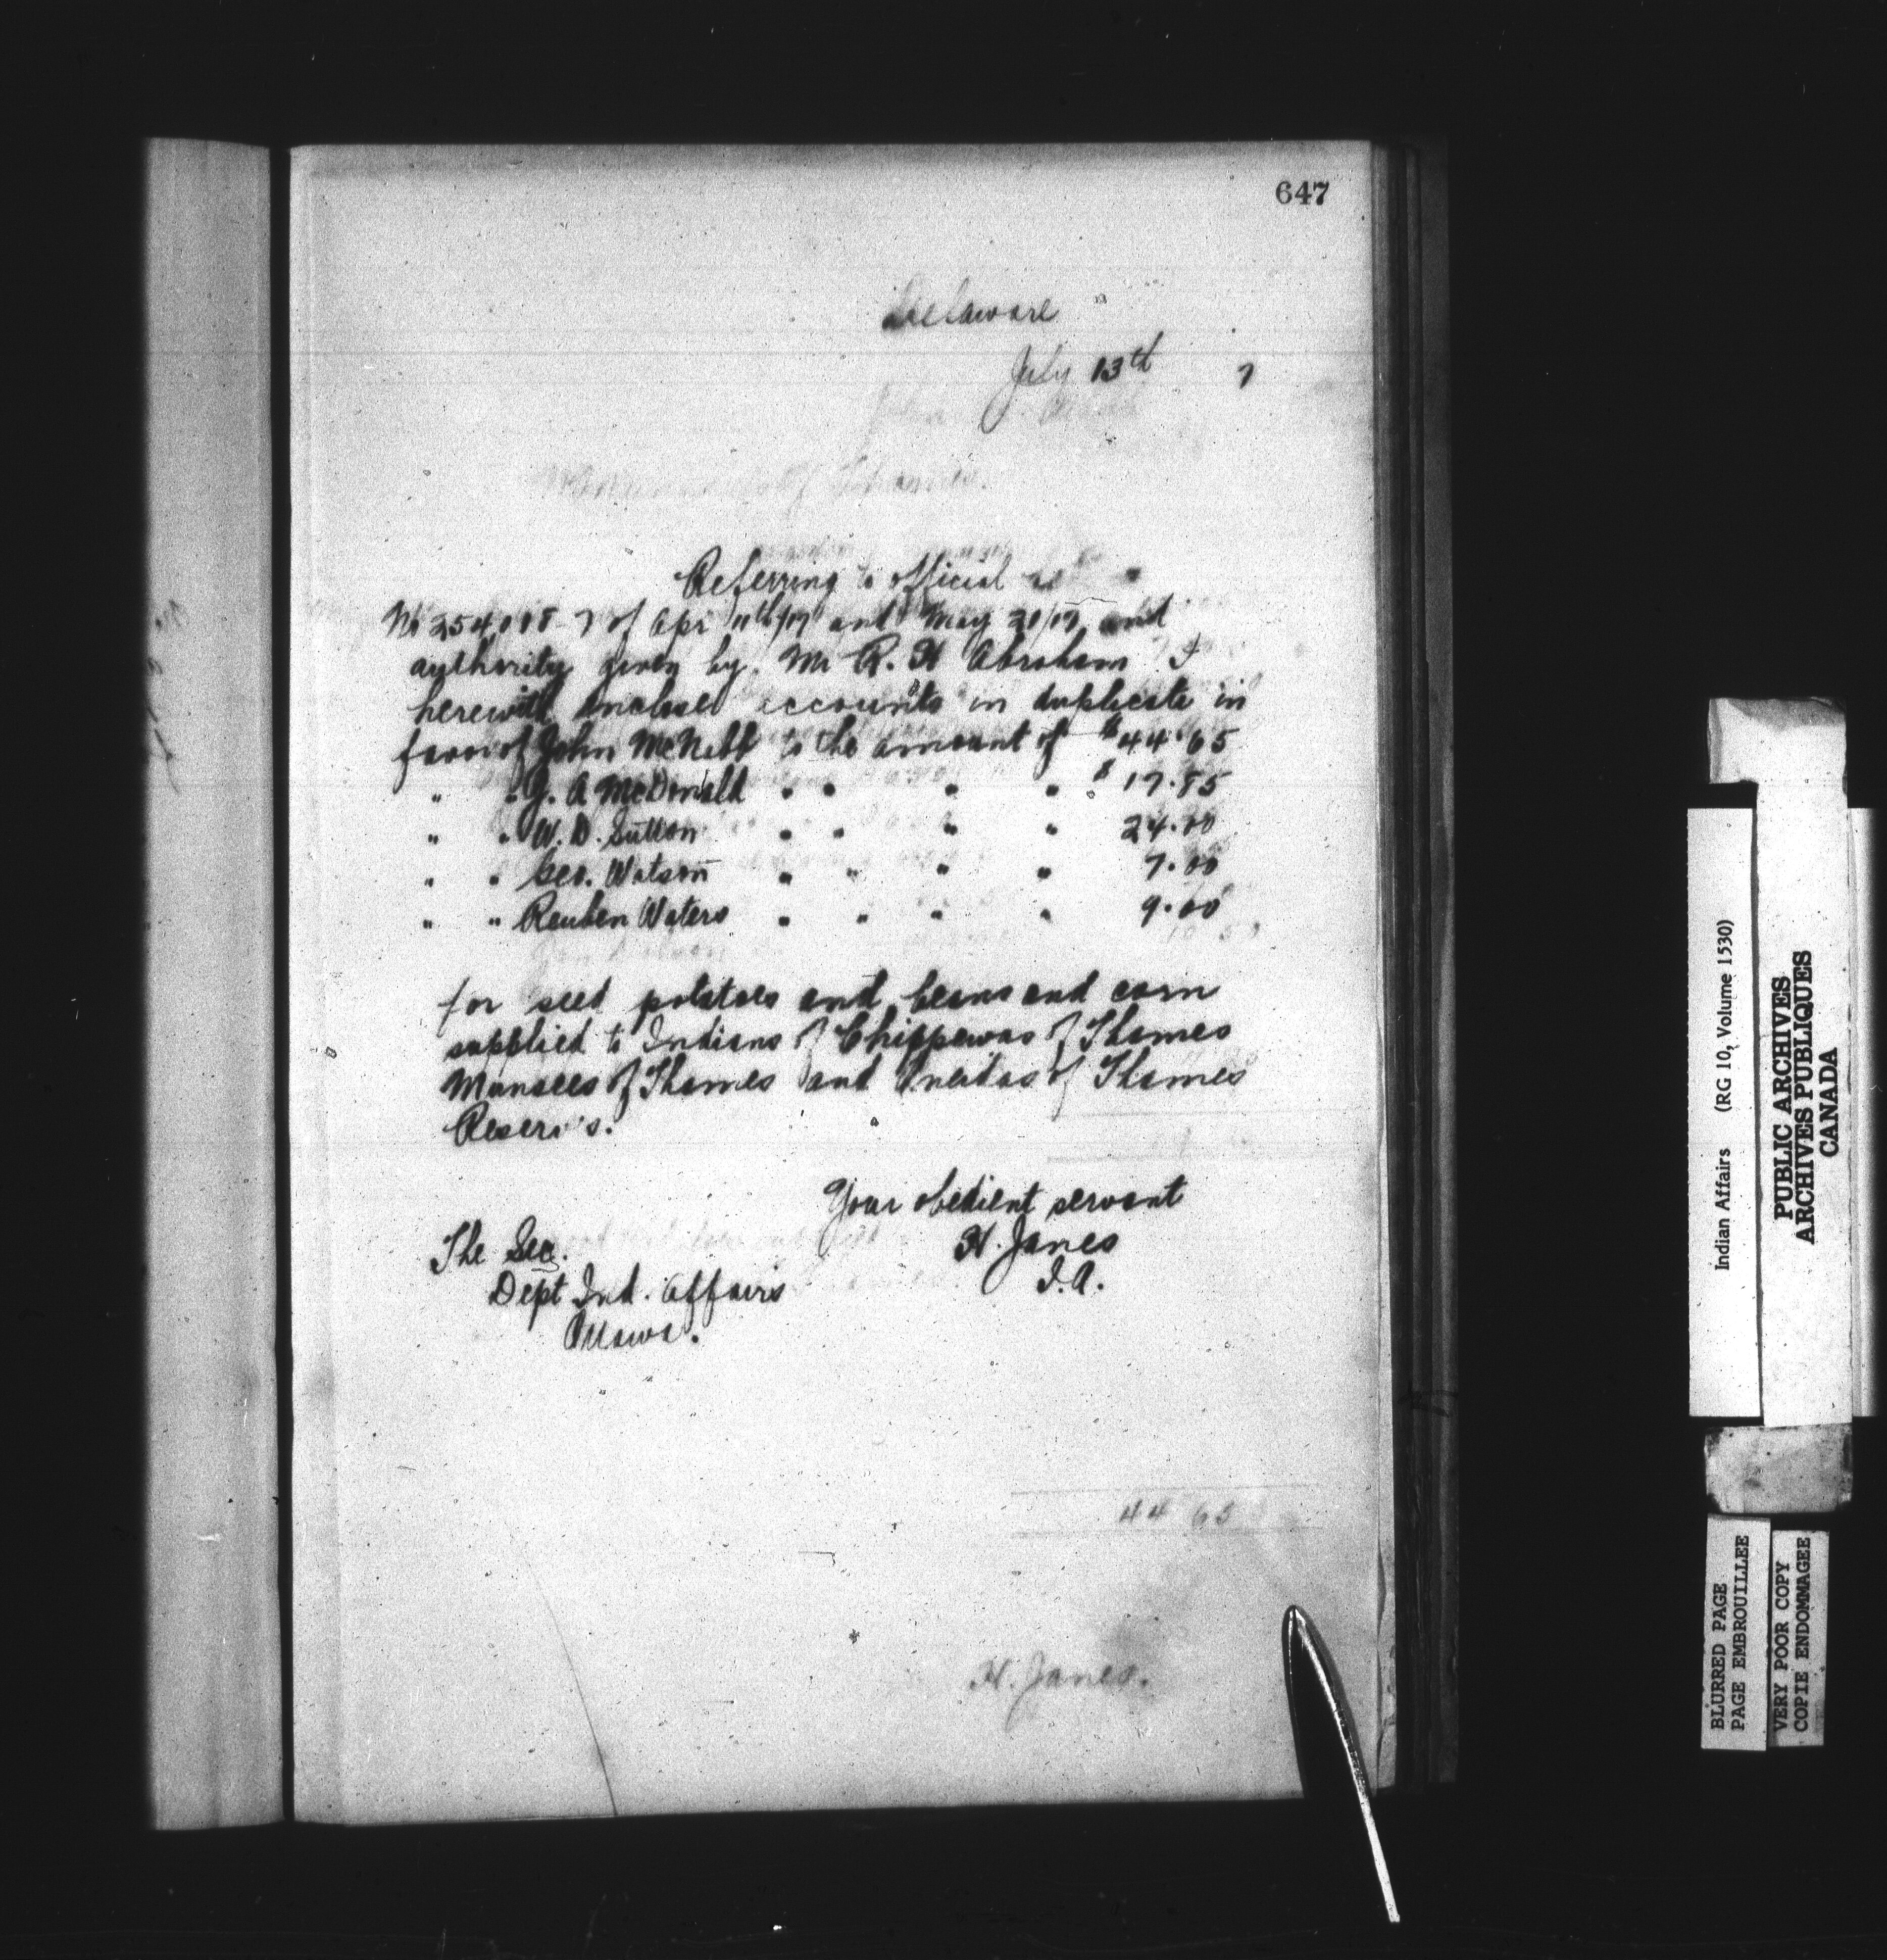 647
Delaware
July 13th 7
Referring to official
No 254,008-7 of Apr 11th/17 and May 21/17 and
authority given by Mr R. H Abraham I
herewith inclose accounts in duplicate in
favor of John McNeff to the amount of $44.65
" " J. A McDonald " " " " $17.85
" " W. D. Sutton " " " " 24.00
" " Geo. Watson " " " " 7.00
" " Reuben Waters " " " " 9.00
for seed potatoes and beans and corn
supplied to Indians of Chippewas of Thames
Munsees of Thames and Oneidas of Thames
Reserv's.
Your obedient servant
H. Janes
I.A.
The Sec.
Dept Ind. Affairs
Ottawa.
44 65
H. Janes.
Indian Affairs (RG 10, Volume 1530)
PUBLIC ARCHIVES
ARCHIVES PUBLIQUES
CANADA
BLURRED PAGE
PAGE EMBROUILLEE
VERY POOR COPY
COPIE ENDOMMAGEE